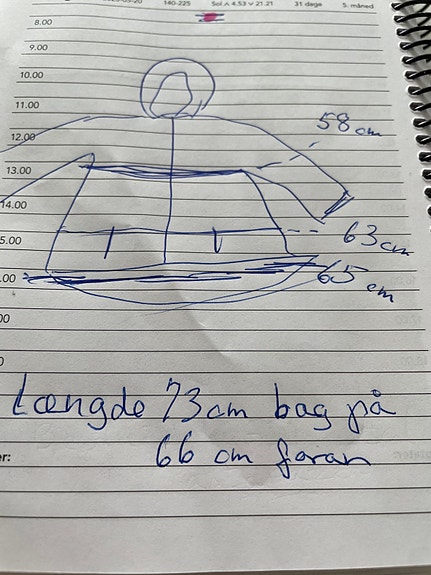 140-225 Sol ʌ 4.53 v 21.21 31 dage 5. måned
8.00
9.00
10.00
11.00
58 cm
12.00
13.00
14.00
63 cm
5.00
65 cm
.00
00
0
Længde 73 cm bag på
66 cm foran
er: